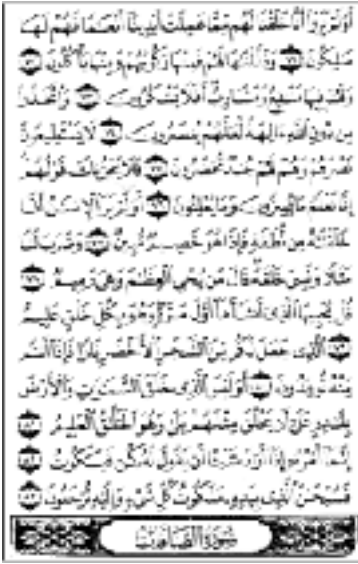 أَوَلَمْ يَرَوْا أَنَّا خَلَقْنَا لَهُم مِّمَّا عَمِلَتْ أَيْدِينَا أَنْعَٰمًا فَهُمْ لَهَا
مَٰلِكُونَ ٧١ وَذَلَّلْنَٰهَا لَهُمْ فَمِنْهَا رَكُوبُهُمْ وَمِنْهَا يَأْكُلُونَ ٧٢
وَلَهُمْ فِيهَا مَنَٰفِعُ وَمَشَارِبُ أَفَلَا يَشْكُرُونَ ٧٣ وَاتَّخَذُوا
مِن دُونِ اللَّهِ ءَالِهَةً لَّعَلَّهُمْ يُنصَرُونَ ٧٤ لَا يَسْتَطِيعُونَ
نَصْرَهُمْ وَهُمْ لَهُمْ جُندٌ مُّحْضَرُونَ ٧٥ فَلَا يَحْزُنكَ قَوْلُهُمْ
إِنَّا نَعْلَمُ مَا يُسِرُّونَ وَمَا يُعْلِنُونَ ٧٦ أَوَلَمْ يَرَ الْإِنسَٰنُ أَنَّا
خَلَقْنَٰهُ مِن نُّطْفَةٍ فَإِذَا هُوَ خَصِيمٌ مُّبِينٌ ٧٧ وَضَرَبَ لَنَا
مَثَلًا وَنَسِيَ خَلْقَهُ قَالَ مَن يُحْيِ الْعِظَٰمَ وَهِيَ رَمِيمٌ ٧٨
قُلْ يُحْيِيهَا الَّذِي أَنشَأَهَا أَوَّلَ مَرَّةٍ وَهُوَ بِكُلِّ خَلْقٍ عَلِيمٌ
٧٩ الَّذِي جَعَلَ لَكُم مِّنَ الشَّجَرِ الْأَخْضَرِ نَارًا فَإِذَا أَنتُم
مِّنْهُ تُوقِدُونَ ٨٠ أَوَلَيْسَ الَّذِي خَلَقَ السَّمَٰوَٰتِ وَالْأَرْضَ
بِقَٰدِرٍ عَلَىٰ أَن يَخْلُقَ مِثْلَهُم بَلَىٰ وَهُوَ الْخَلَّٰقُ الْعَلِيمُ ٨١
إِنَّمَا أَمْرُهُ إِذَا أَرَادَ شَيْئًا أَن يَقُولَ لَهُ كُن فَيَكُونُ ٨٢
فَسُبْحَٰنَ الَّذِي بِيَدِهِ مَلَكُوتُ كُلِّ شَيْءٍ وَإِلَيْهِ تُرْجَعُونَ ٨٣
سُورَةُ الصَّافَّاتِ